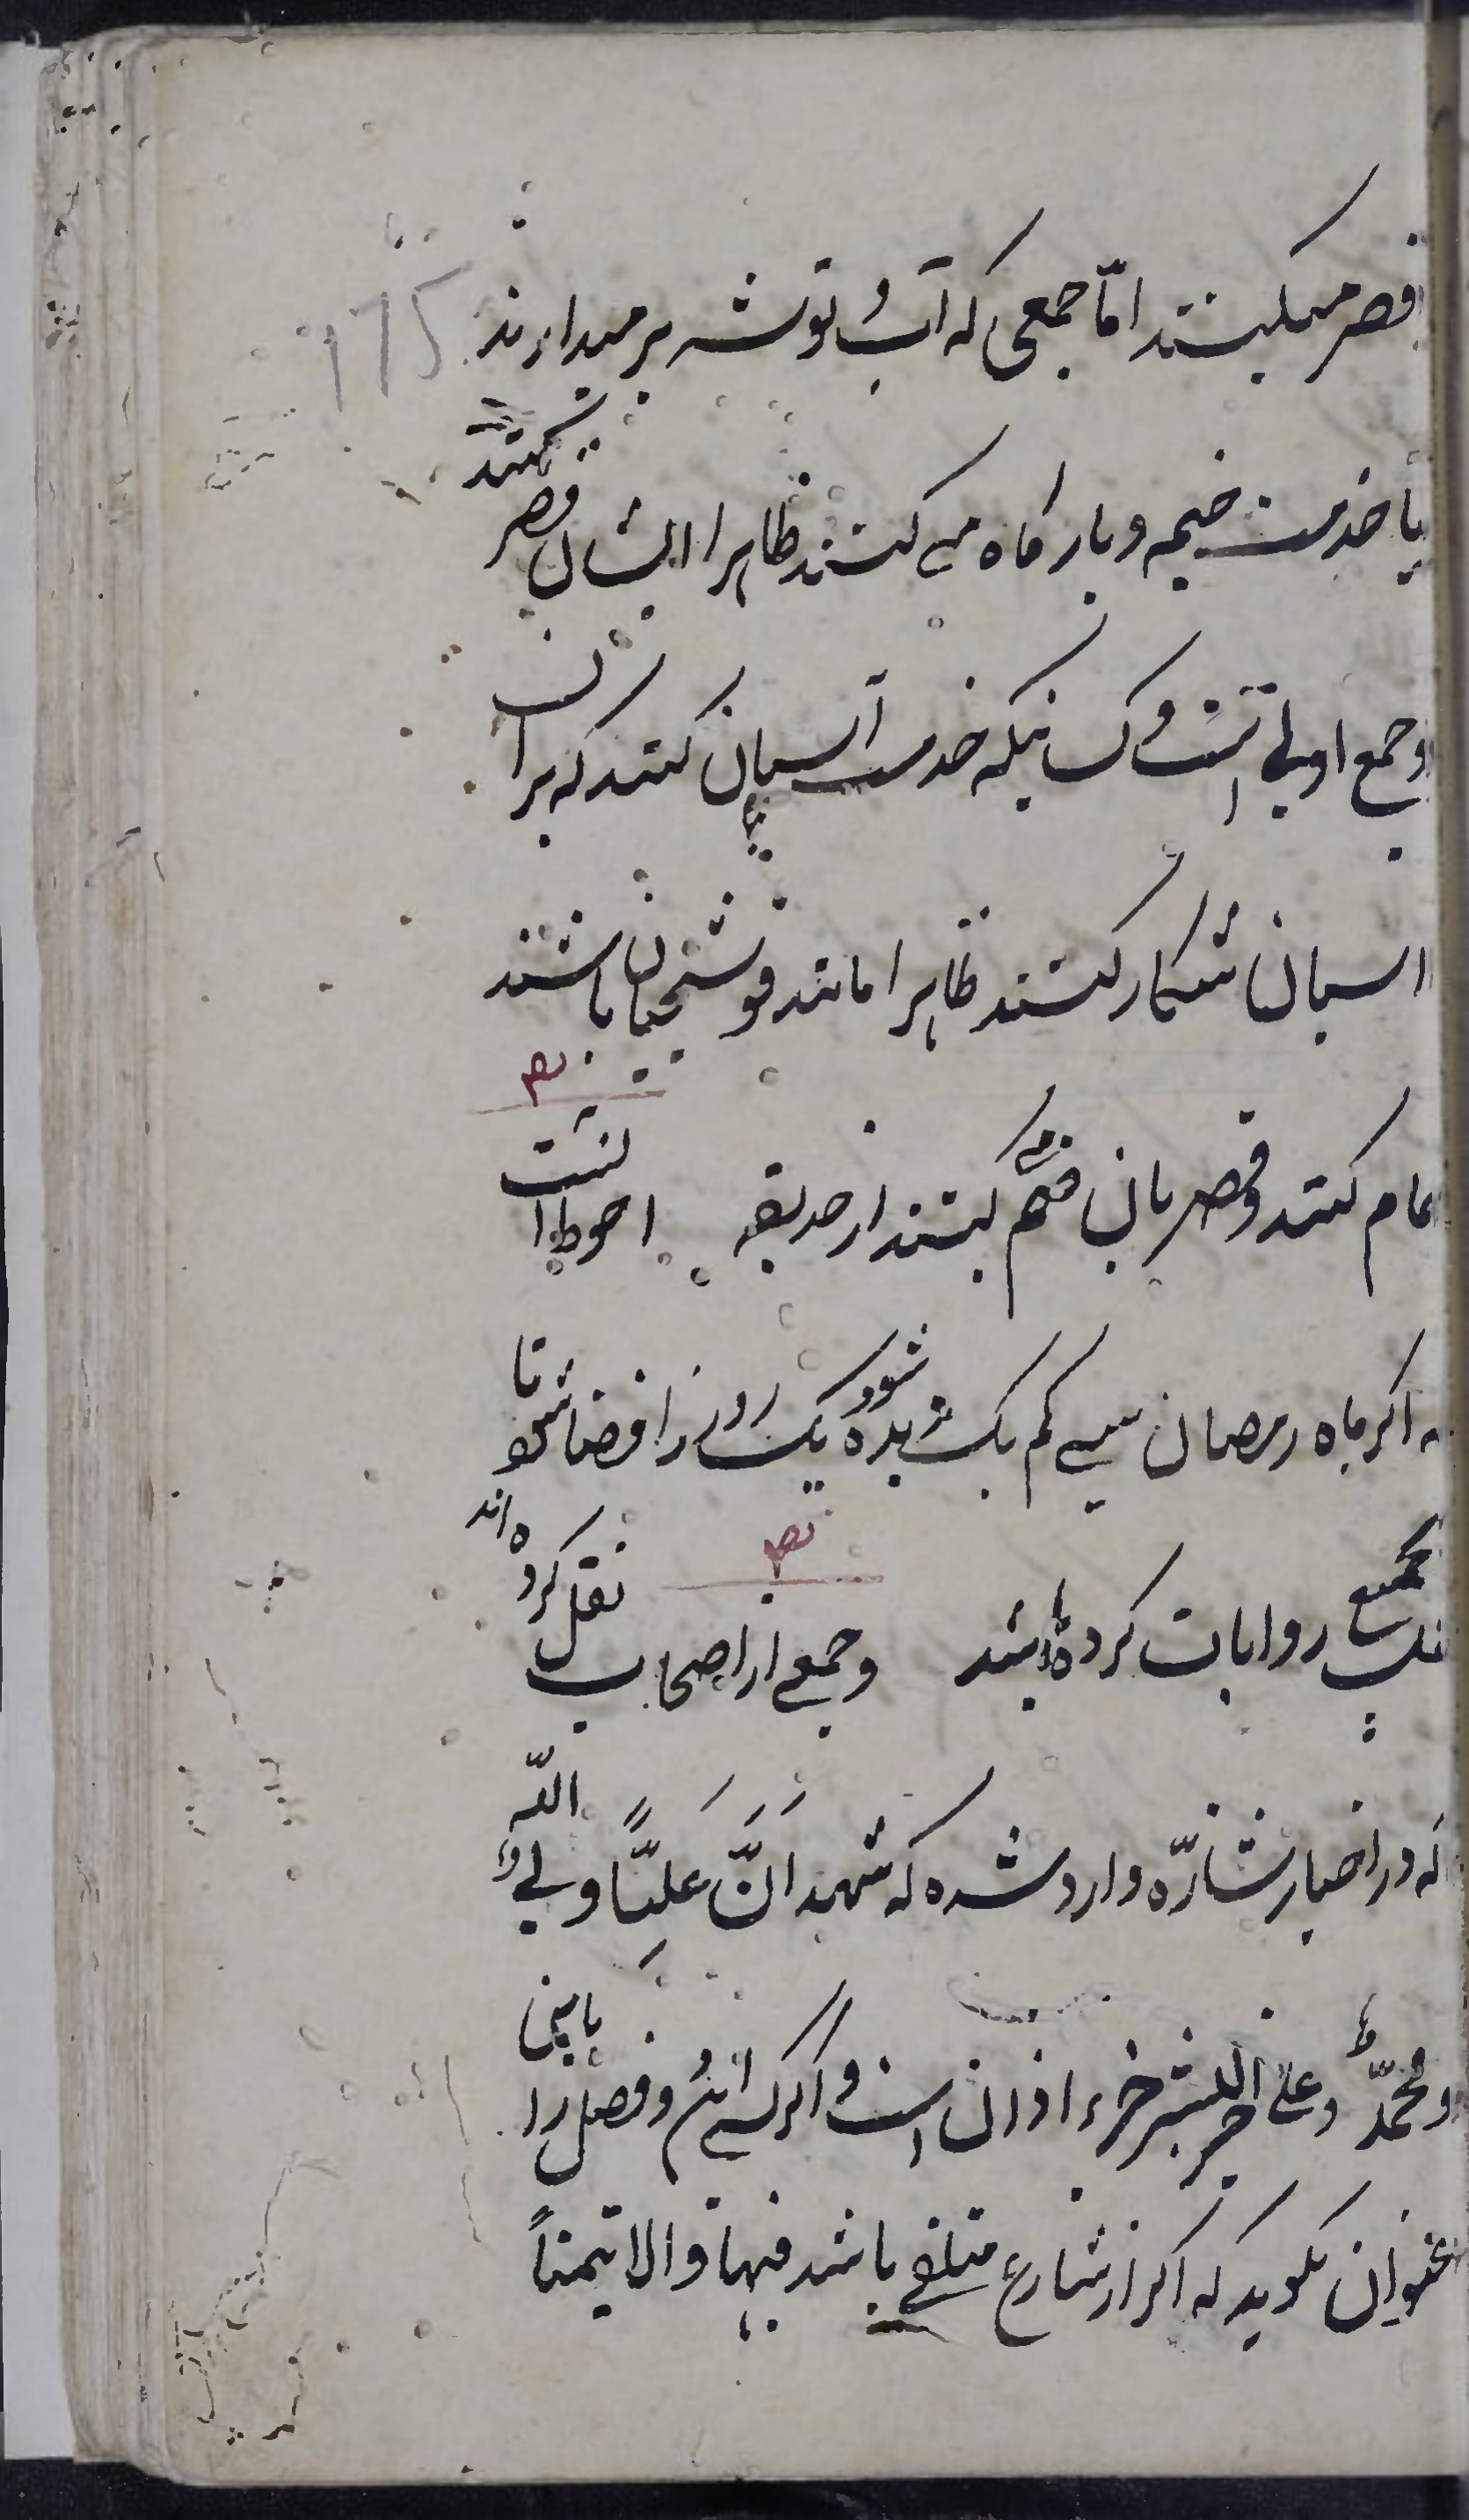 قصر میکنند امّا جمعی که آب و توشه بر میدارند
یا خدمت خیمه و بارکاه می کنند ظاهرا ایشان قصر کنند
و جمع اولی است و کسانیکه خدمت آسبان کنند که بر آن
اسبان شکار کنند ظاهرا مانند قوشچیان باشند
تمام کنند و قصر بان ضم کنند از حدیقه احوط انست
که اکر ماه رمضان سی کم یک شود یک روز را قضا شود تا
جمیع روایات کرده باشد وجمعی از اصحاب نقل کرده اند
که در اخبار شاذّه وارد شده که شهد انّ علیّاً ولیّ اللّه
و محمّد و علی خیر البشر جزء اذان است و اکر کسی این دو فصل را باین
عنوان بکوید که اکر از شارع متلقی باشد فبها و الا تیمناً